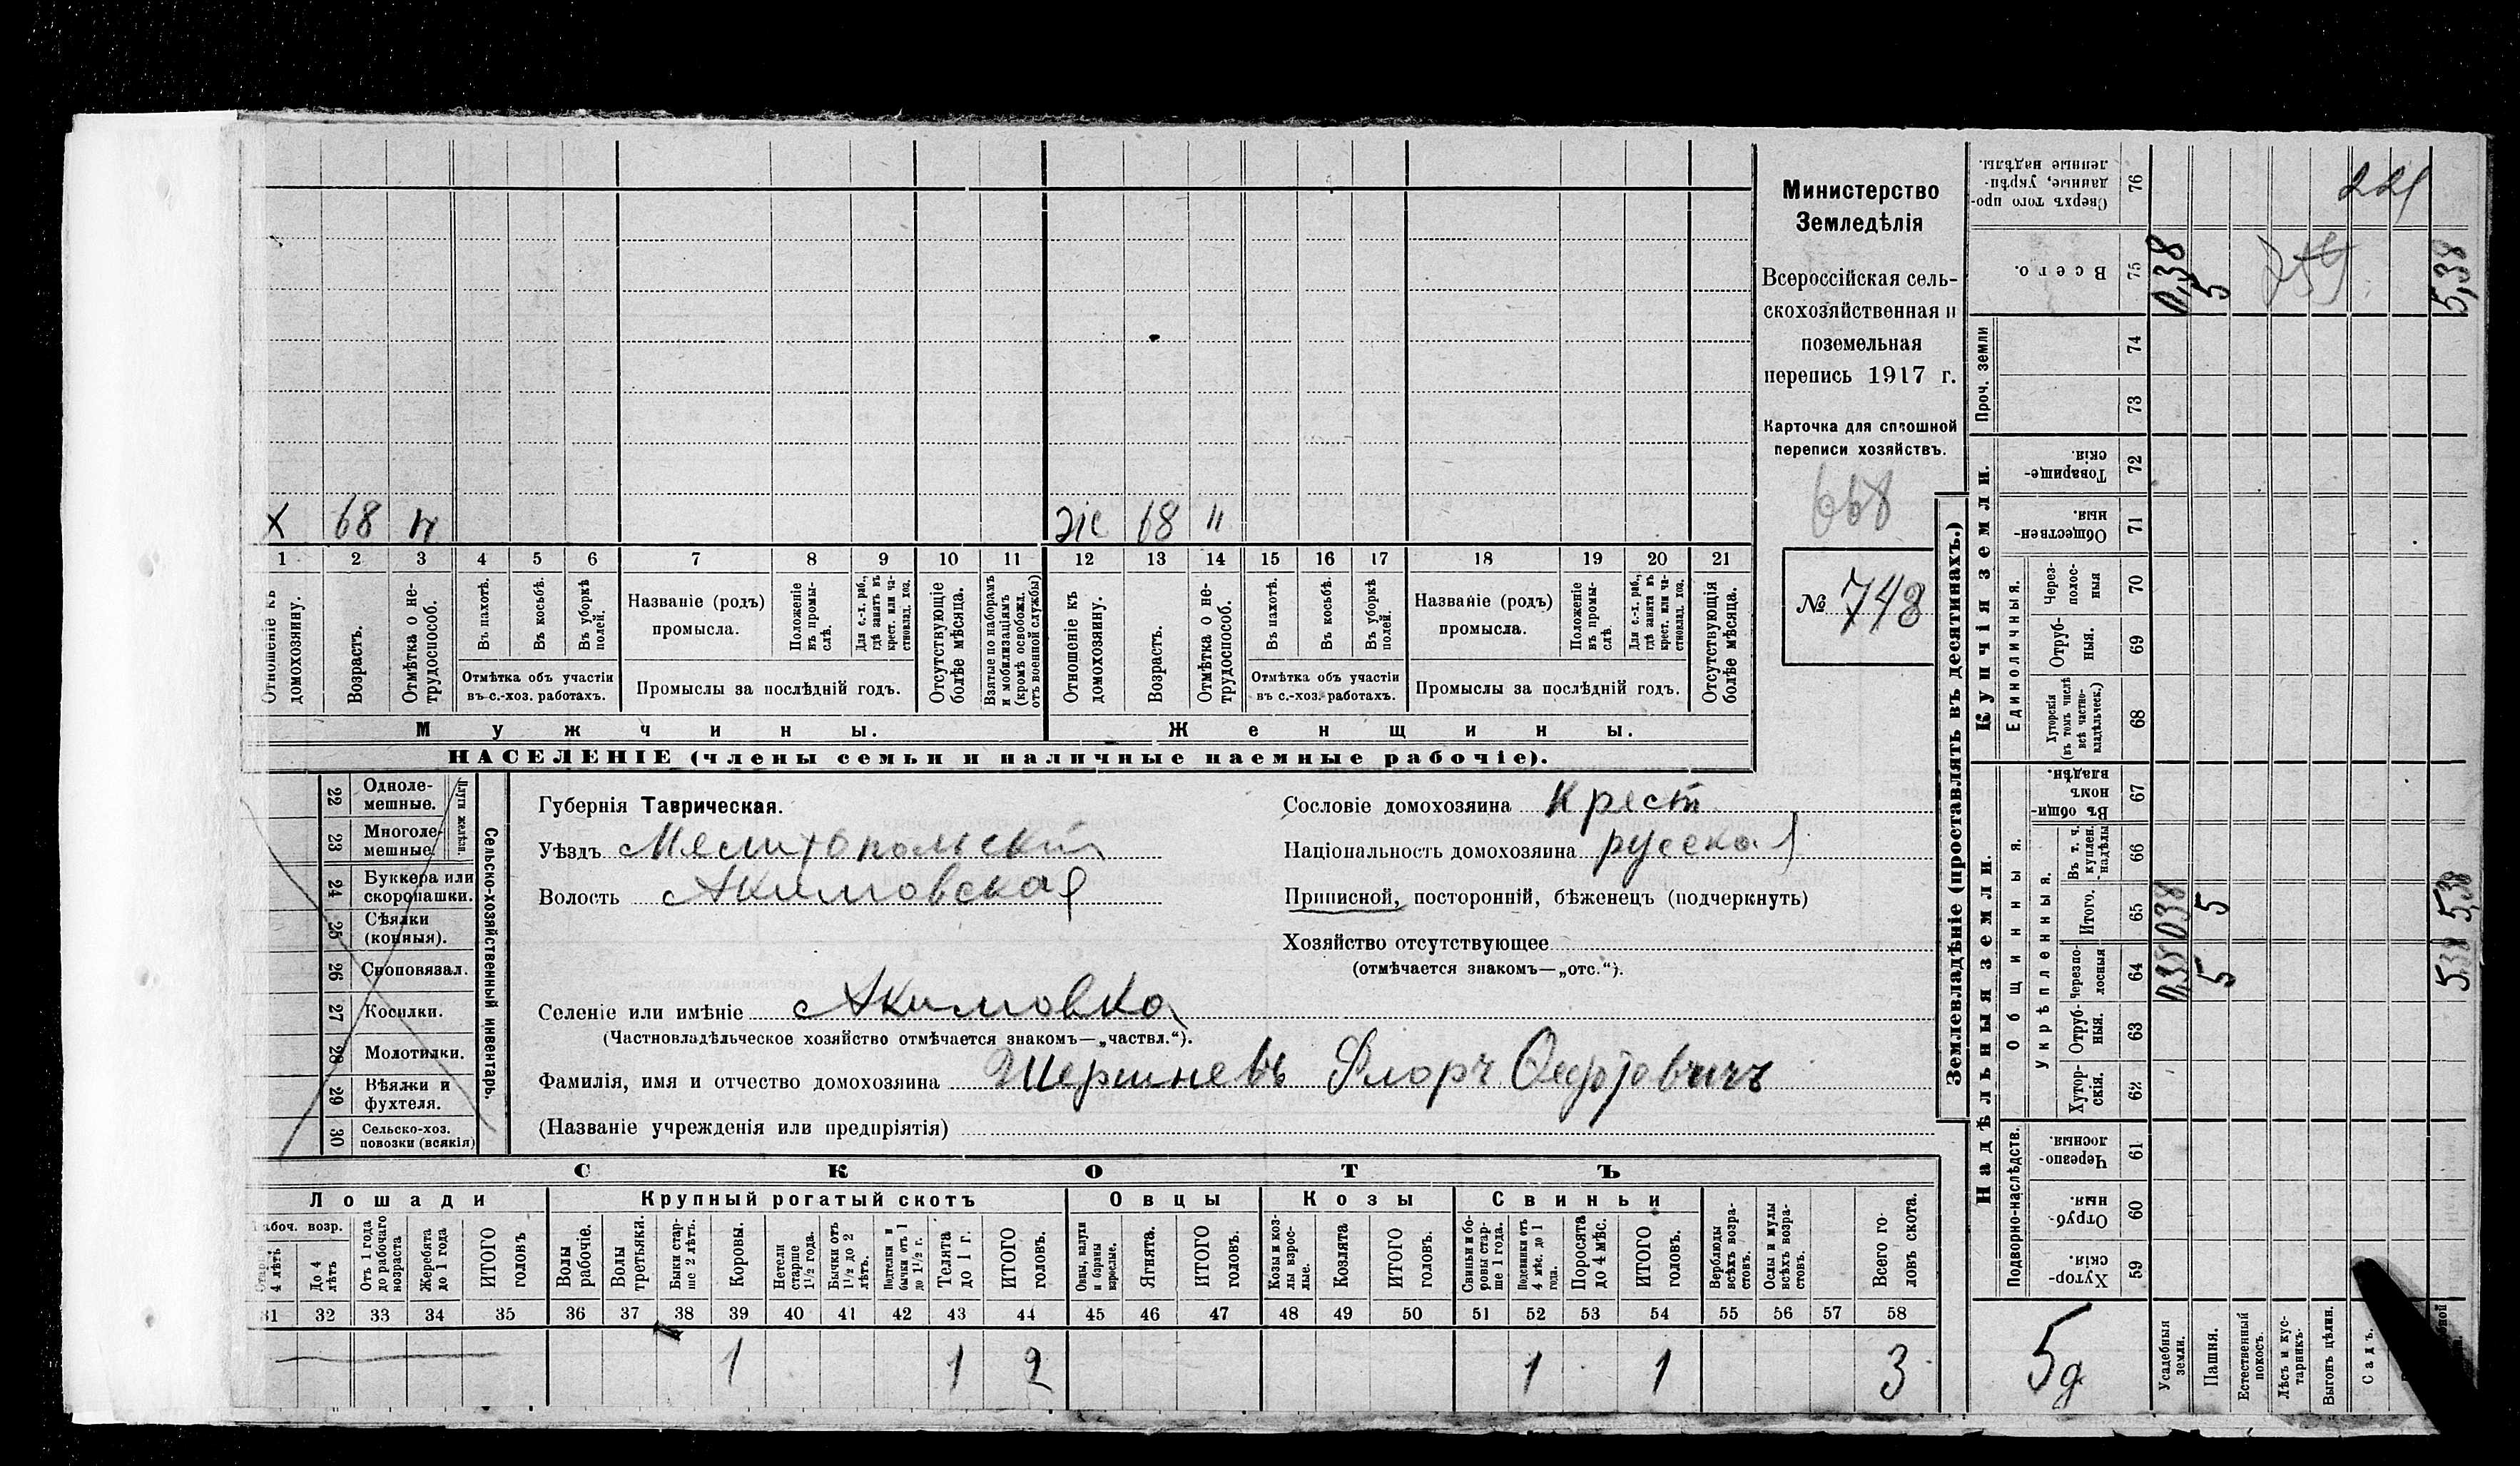 Министерство
Земледѣлія
Всероссійская сель-
скохозяйственная и
поземельная
перепись 1917 г.
Карточка для сплошной
переписи хозяйствъ.
668
№ 748
х 68 н
Ж 68 "
1 2 3 4 5 6 7 8 9 10 11 12 13 14 15 16 17 18 19 20 21
Отношеніе къ домохозяину.
Возрастъ.
Отмѣтка о не-трудоспособ.
Въ пахотѣ.
Въ косьбѣ.
Въ уборкѣ полей.
Отмѣтка объ участіи
въ с.-хоз. работахъ.
Названіе (родъ)
промысла.
Положеніе въ промы-слѣ.
Для с.-х. раб., гдѣ занятъ въ крест. или ча-стновлад. хоз.
Промыслы за послѣдній годъ.
Отсутствующіе болѣе мѣсяца.
Взятые по наборамъ и мобилизаціямъ (кромѣ освобожд. отъ военной службы)
Отношеніе къ домохозяину.
Возрастъ.
Отмѣтка о не-трудоспособ.
Въ пахотѣ.
Въ косьбѣ.
Въ уборкѣ полей.
Отмѣтка объ участіи
въ с.-хоз. работахъ.
Названіе (родъ)
промысла.
Положеніе въ промы-слѣ.
Для с.-х. раб., гдѣ занята въ крест. или ча-стновлад. хоз.
Промыслы за послѣдній годъ.
Отсутствующія болѣе мѣсяца.
Мужчины. Женщины.
НАСЕЛЕНІЕ (члены семьи и наличные наемные рабочіе).
22 Одноле-мешные.
23 Многоле-мешные.
Плуги желѣзн.
24 Буккера или скоропашки.
25 Сѣялки (конныя).
26 Сноповязал.
27 Косилки.
28 Молотилки.
29 Вѣялки и фухтеля.
30 Сельско-хоз. повозки (всякія)
Сельско-хозяйственный инвентарь.
Губернія Таврическая.
Уѣздъ Мелитопольскій
Волость Акимовская
Сословіе домохозяина Крест
Національность домохозяина русская
Приписной, посторонній, бѣженец (подчеркнуть)
Хозяйство отсутствующее
(отмѣчается знакомъ—„отс.“).
Селеніе или имѣніе Акимовка
(Частновладѣльческое хозяйство отмѣчается знакомъ—„частвл.“).
Фамилія, имя и отчество домохозяина Шершневъ Флоръ
(Названіе учрежденія или предпріятія)
СКОТЪ
Лошади Крупный рогатый скотъ Овцы Козы Свиньи
Рабоч. возр.
Старше 4 лѣтъ
До 4 лѣтъ
Отъ 1 года до рабочаго возраста
Жеребята до 1 года
ИТОГО головъ
Волы рабочіе.
Волы третьяки.
Быки стар-ше 2 лѣтъ.
Коровы.
Нетели старше 1½ года.
Бычки отъ 1½ до 2 лѣтъ.
Подтелки и бычки отъ 1 до 1½ г.
Телята до 1 г.
ИТОГО головъ.
Овцы, валухи и бараны взрослые.
Ягнята.
ИТОГО головъ.
Козы и коз-лы взрос-лые.
Козлята
ИТОГО головъ.
Свиньи и бо-ровы стар-ше 1 года.
Подсвинки отъ 4 мѣс. до 1 года.
Поросята до 4 мѣс.
ИТОГО головъ.
Верблюды всѣхъ возра-стовъ.
Ослы и мулы всѣхъ возра-стовъ.
Всего го-ловъ скота.
31 32 33 34 35 36 37 38 39 40 41 42 43 44 45 46 47 48 49 50 51 52 53 54 55 56 57 58
1 1 2 1 1 3
Землевладѣніе (проставлять въ десятинахъ.)
Надѣльныя земли. Купчія земли. Проч. земли
Подворно-наслѣдств. Общинныя. Укрѣпленныя. Единоличныя.
Хутор-скія. 59
Отруб-ныя. 60
Черезпо-лосныя 61
Хутор-скія. 62
Отруб-ныя. 63
Черезпо-лосныя 64
Итого. 65
Въ т. ч. куплен. надѣлы 66
Въ общи-номъ владѣн. 67
Хуторскія (въ томъ числѣ всѣ частно-владѣльческ.) 68
Отруб-ныя. 69
Через-полос-ныя 70
Обществен-ныя. 71
Товарище-скія. 72
73
74
Всего. 75
Сверхъ того про-данные, укрѣп-ленные надѣлы. 76
5д
Усадебныя земли. 0,38 0,38 0,38
Пашня. 5 5 5
Естественный покосъ.
Лѣсъ и кус-тарникъ.
Выгонъ цѣлин.
Садъ.
5,38 5,38 5,38